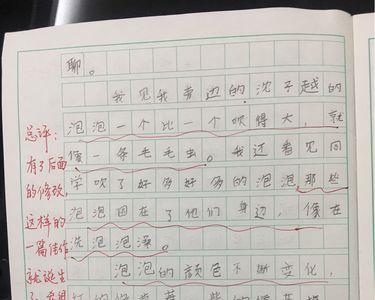 聊。
我见我旁边的沈子越的
泡泡一个比一个吹得大，就
像一条毛毛虫。我还看见同
学吹了好多好多的泡泡那些
泡泡围在了他们身边，像在
洗泡泡澡。
泡泡的颜色不断变化，
总评：
有了后面
的修改，
这样的
一篇佳作
就诞生